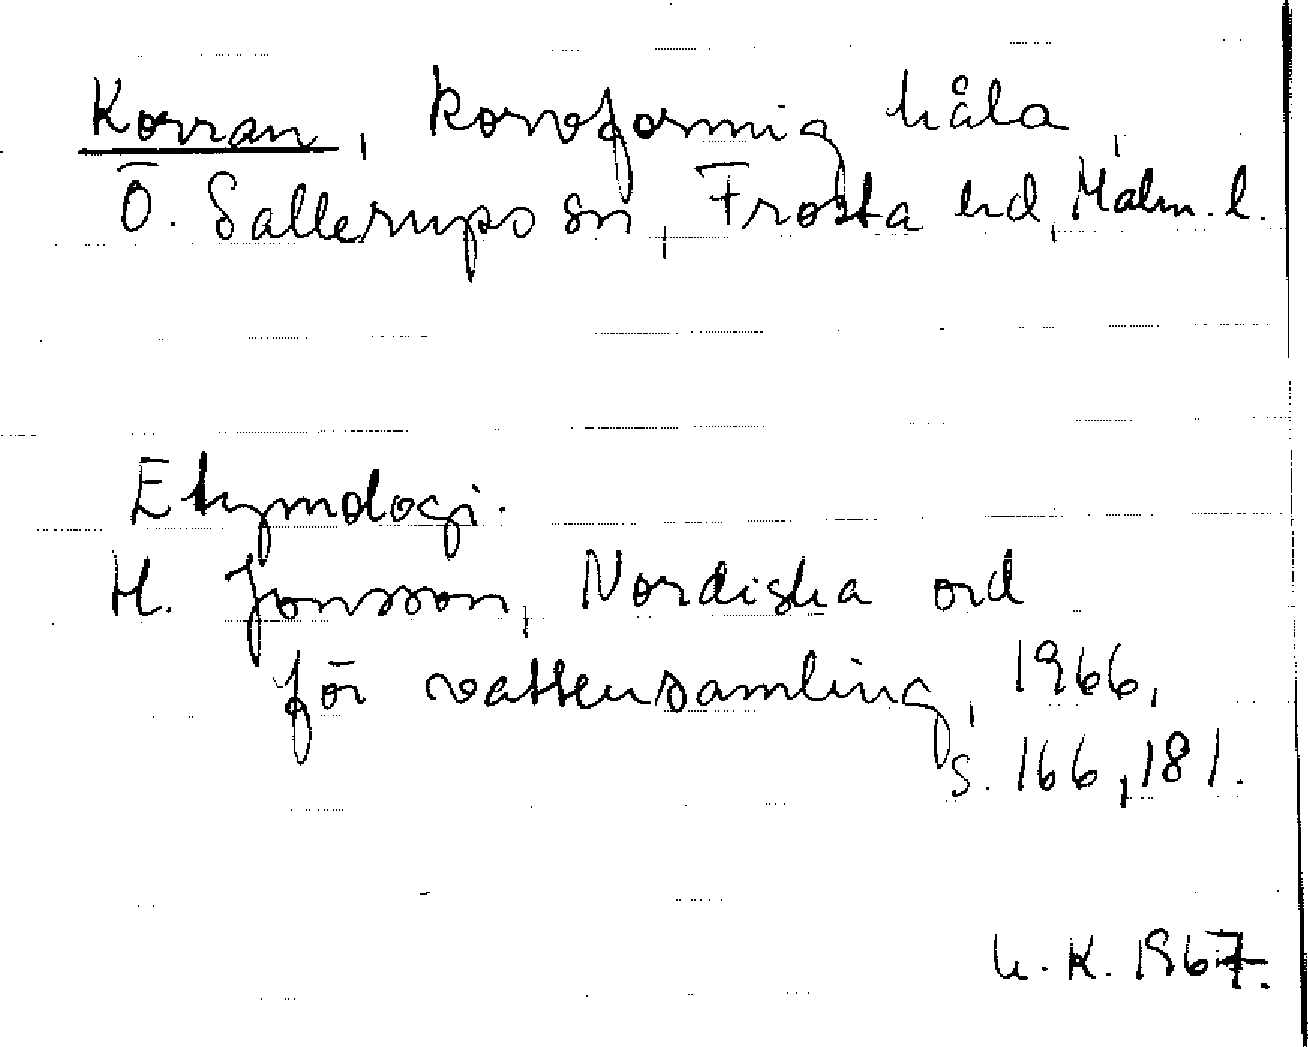 Korran, korvformig håla,
Ö. Sallerups sn, Frosta hd, Malm. l.
Etymologi.
H. Jonsson, Nordiska ord
för vattensamling, 1966,
s. 166, 181.
U.K. 1967.